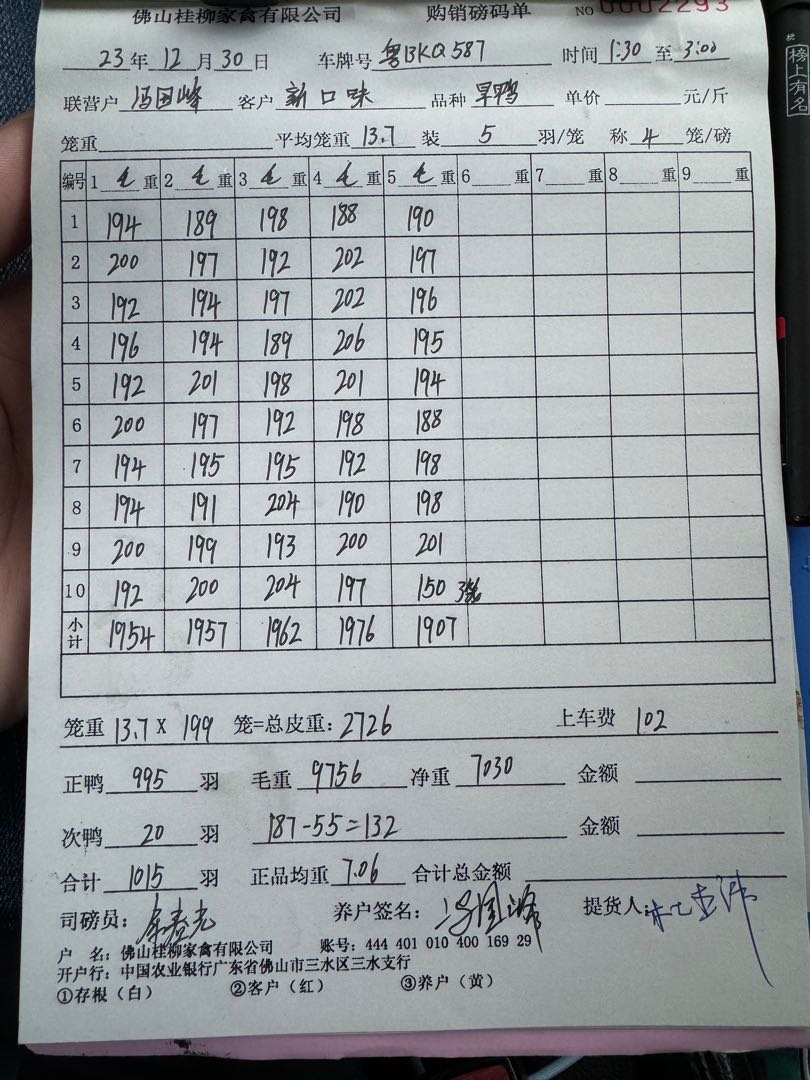 佛山桂柳家禽有限公司 购销磅码单 NO 0002293
23年12月30日 车牌号 粤BKQ587 时间1:30至3:00
联营户 冯国峰 客户 新口味 品种 旱鸭 单价 元/斤
笼重 平均笼重 13.7 装 5 羽/笼 称 4 笼/磅
编号 1 毛 重 2 毛 重 3 毛 重 4 毛 重 5 毛 重 6 重 7 重 8 重 9 重
1 194 189 198 188 190
2 200 197 192 202 197
3 192 194 197 202 196
4 196 194 189 206 195
5 192 201 198 201 194
6 200 197 192 198 188
7 194 195 195 192 198
8 194 191 204 190 198
9 200 199 193 200 201
10 192 200 204 197 150 3笼
小计 1954 1957 1962 1976 1907
笼重 13.7 X 199 笼=总皮重: 2726 上车费 102
正鸭 995 羽 毛重 9756 净重 7030 金额
次鸭 20 羽 187-55=132 金额
合计 1015 羽 正品均重 7.06 合计总金额
司磅员: 养户签名: 冯国峰 提货人:
户 名: 佛山桂柳家禽有限公司 账号: 444 401 010 400 169 29
开户行: 中国农业银行广东省佛山市三水区三水支行
①存根（白） ②客户（红） ③养户（黄）
榜上有名